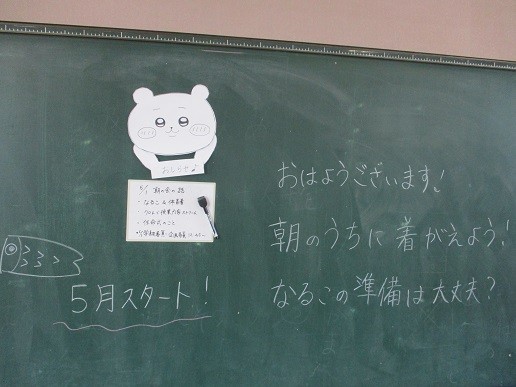 おはようございます!
朝のうちに着がえよう!
なるこの準備は大丈夫?
おしらせ♪
5/1 朝の会の話
・なるこ&体育着
5月スタート!